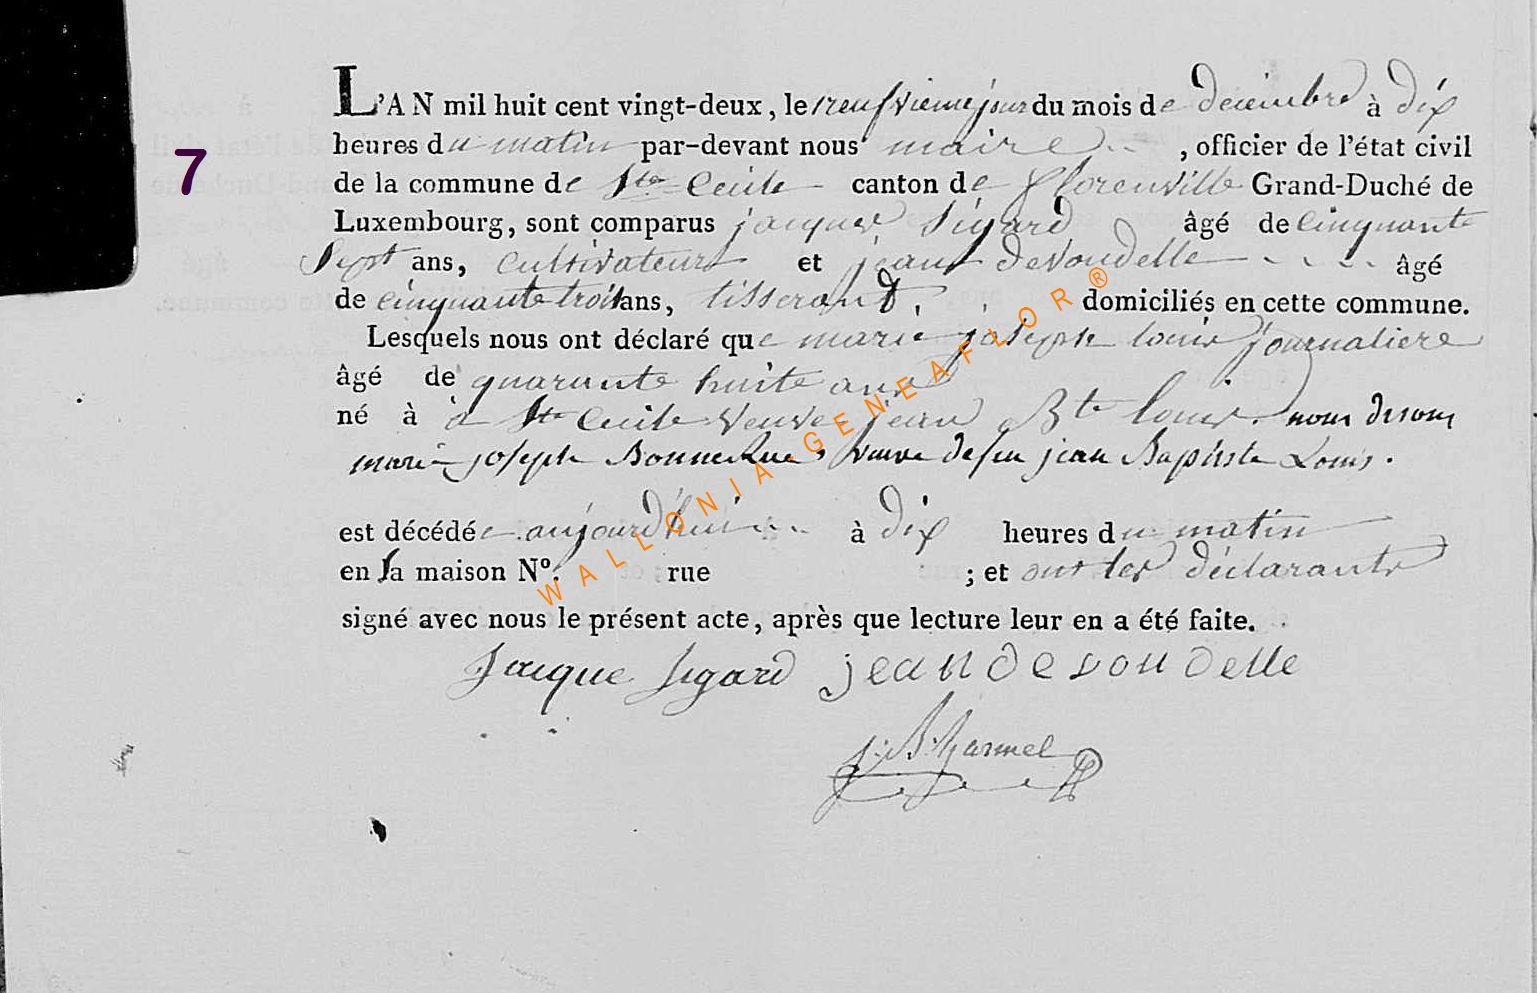 L'AN mil huit cent vingt-deux, le neufvieme jour du mois de décembre à dix
7
heures du matin par-devant nous maire, officier de l'état civil
de la commune de Ste Cecile canton de florenville Grand-Duché de
Luxembourg, sont comparus jacques sigard âgé de cinquante
Sept ans, cultivateur et jean devoudelle âgé
de cinquante trois ans, tisserand, domiciliés en cette commune.
Lesquels nous ont déclaré que marie joseph louis journaliere
âgé de quarante huite ans
né à à Ste Cecile veuve jean Bte louis. nous disons
marie joseph veuve de feu jean Baptiste Louis.
est décédée aujourd'hui à dix heures du matin
en sa maison N°. rue ; et ont les déclarants
signé avec nous le présent acte, après que lecture leur en a été faite.
Jacque sigard jean devoudelle
WALLONIA-GENEAFLOR®